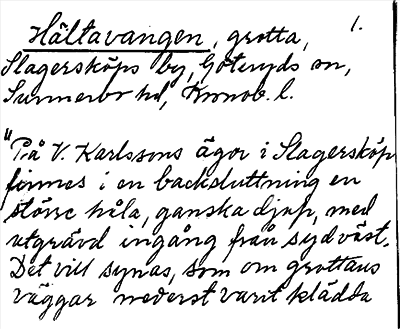 Hältavangen, grotta, 1.
Slagersköps by, Göteryds sn,
Sunnerbo hd, Kronob. l.
"På V. Karlssons ägor i Slagersköp
finnes i en backsluttning en
större håla, ganska djup, med
utgrävd ingång från sydväst.
Det vill synas, som om grottans
väggar nederst varit klädda